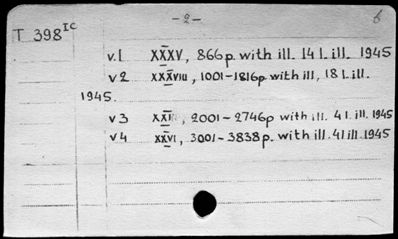 -2- 6
T 398 IC
v.1 XXXV, 866p. with ill. 14 l. ill. 1945
v 2 XXXVIII, 1001-1816p with ill, 18 l. ill.
1945.
v 3 2001-2746p with ill. 4 l. ill. 1945
v 4 XXVI, 3001-3838p. with ill. 4 l. ill. 1945